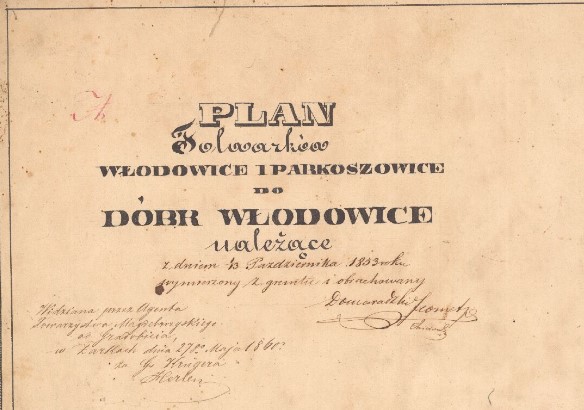 PLAN
Folwarków
WŁODOWICE I PARKOSZOWICE
DO
DÓBR WŁODOWICE
należące
z dniem 13 Października 1853 roku
wymierzony z gruntu i obrachowany
Domaradzki Jeomet
Widziana przez Agenta
Towarzystwa
w Żarkach dnia 27go Maja 1860
za Gr Krügera